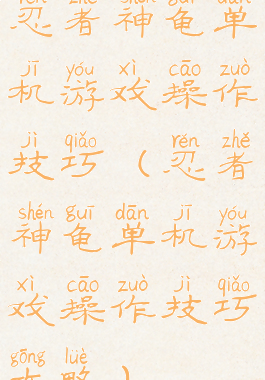 rěn zhě shén guī dān
忍者神龟单
jī yóu xì cāo zuò
机游戏操作
jì qiǎo rěn zhě
技巧（忍者
shén guī dān jī yóu
神龟单机游
xì cāo zuò jì qiǎo
戏操作技巧
gōng lüè
攻略）